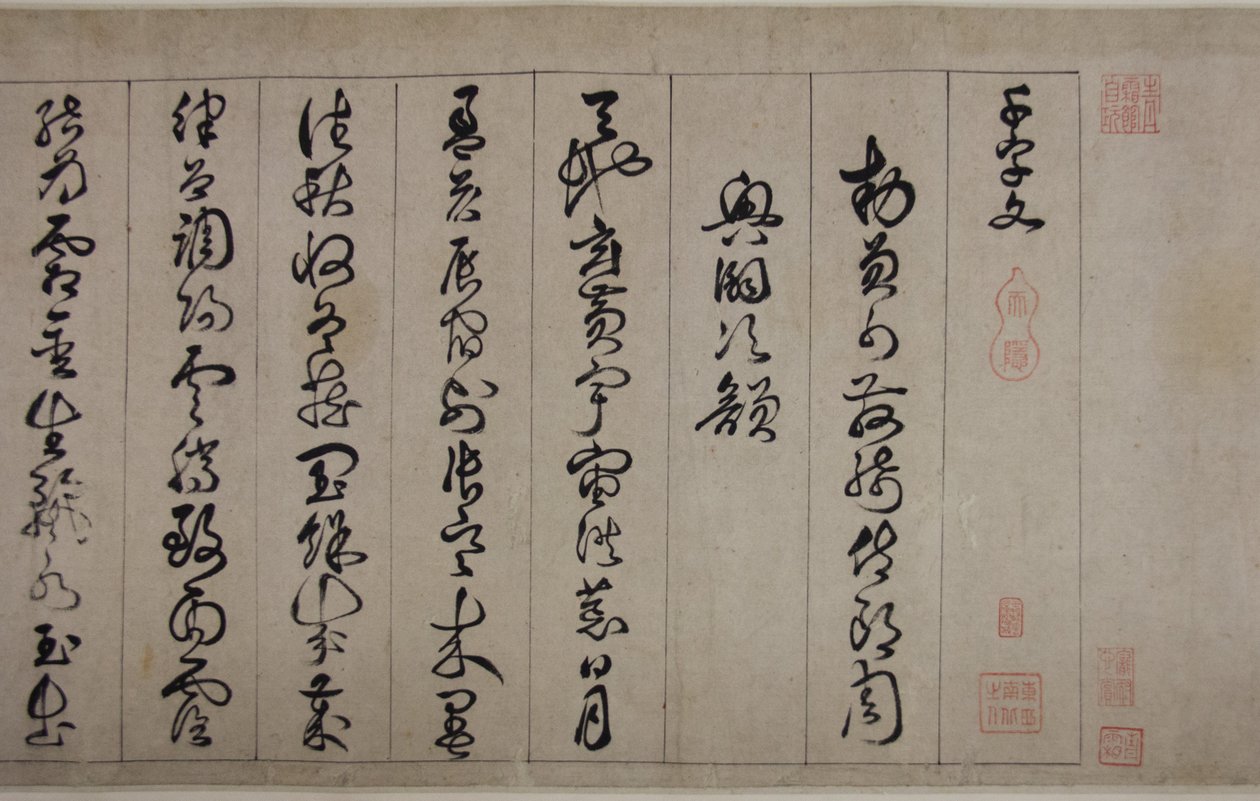 千字文
敕員外散騎侍郎周
興嗣次韻
天地玄黃宇宙洪荒日月
盈昃辰宿列張寒來暑
往秋收冬藏閏餘成歲
律召調陽雲騰致雨露
結為霜金生麗水玉出